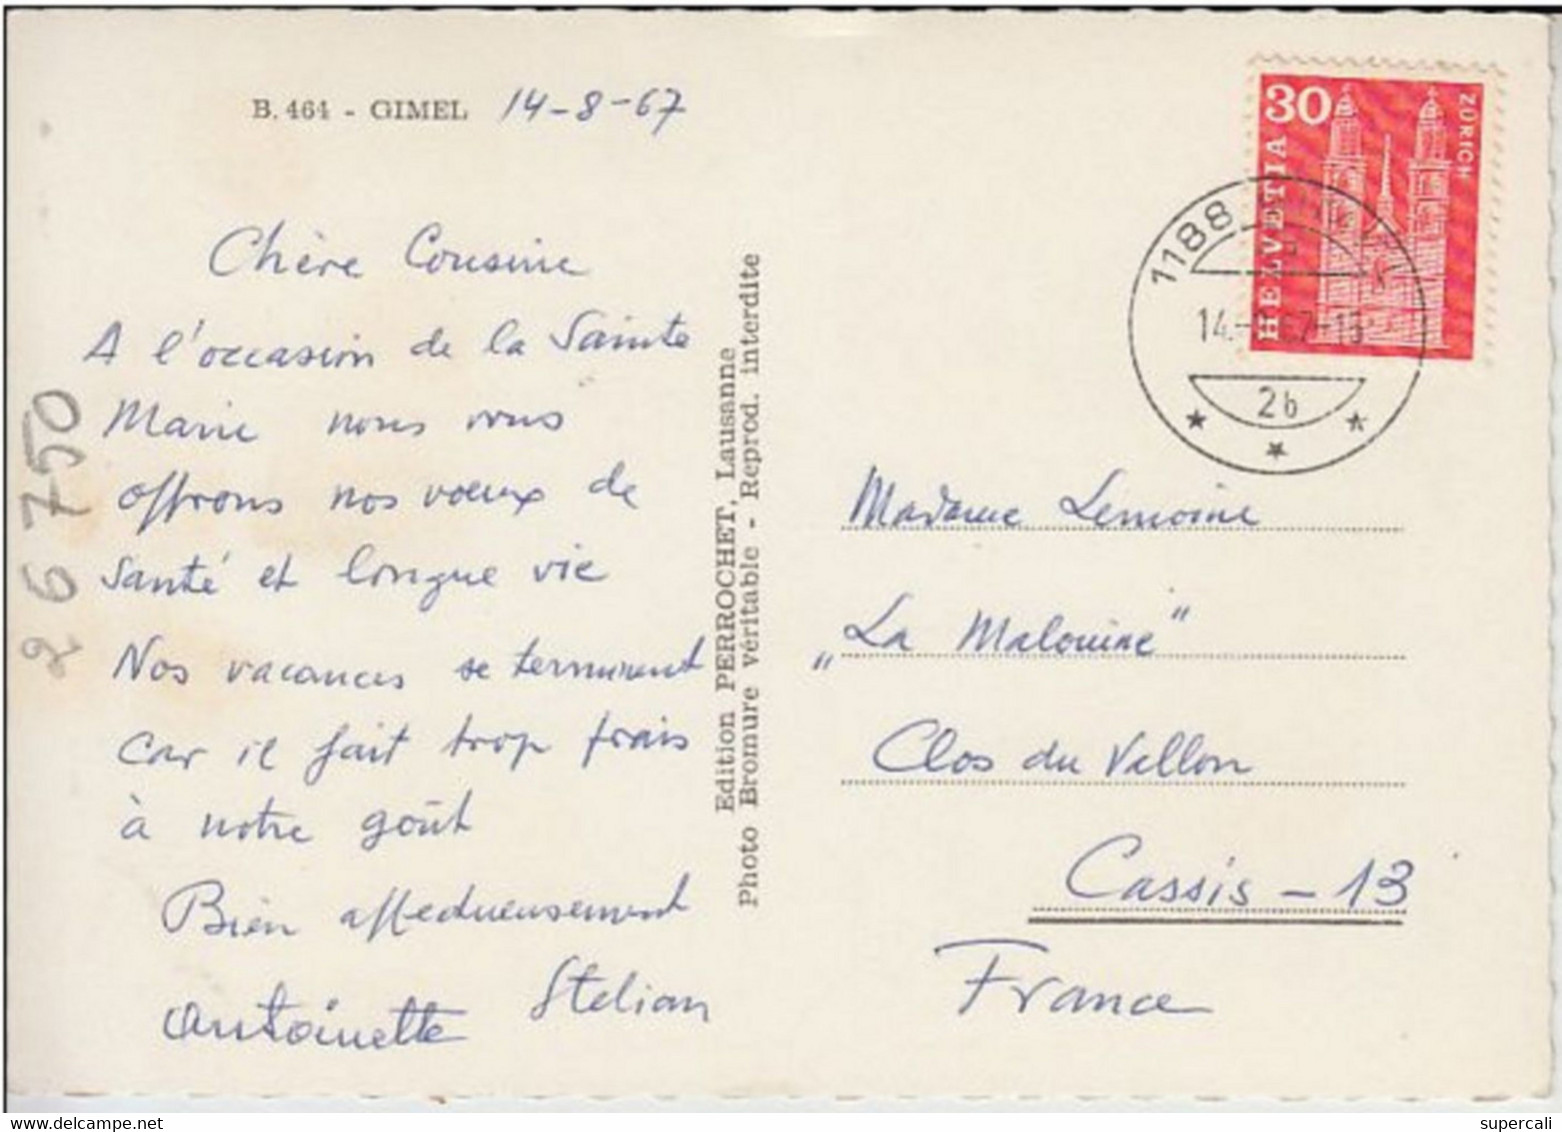 B. 464 - GIMEL 14-8-67
Chère Cousine
A l'occasion de la Sainte
Marie nous vous
offrons nos voeux de
Santé et longue vie
Nos vacances se terminent
Car il fait trop frais
à notre goût
Bien affectueusement
Stelian
Antoinette
26750
Edition PERROCHET, Lausanne
Photo Bromure véritable - Reprod. interdite
30
HELVETIA
ZÜRICH
1188
2b
Madame Lemoine
„La Malouine"
Clos du Vallon
Cassis - 13
France
www.delcampe.net
supercali